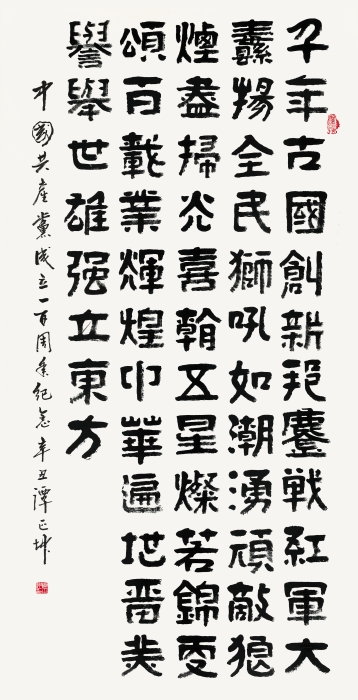 千年古國創新邦鏖戰紅軍大
纛揚全民獅吼如潮湧頑敵狼
煙盡掃光喜看五星燦若錦更
頌百載業輝煌中華遍地美
譽舉世雄强立東方
中國共產黨成立一百周年紀念辛丑譚正坤